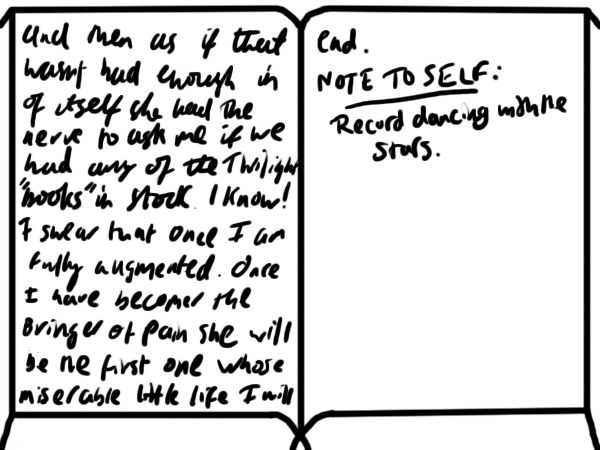 and then as if that
wasnt had enough in
of itself she had the
nerve to ask me if we
had any of the Twilight
"books" in stock. I Know!
I swear that once I am
fully augmented. Once
I have becomer the
Bringer of Pain she will
be the first one whose
miserable little life I will
end.
NOTE TO SELF:
Record dancing with the
stars.